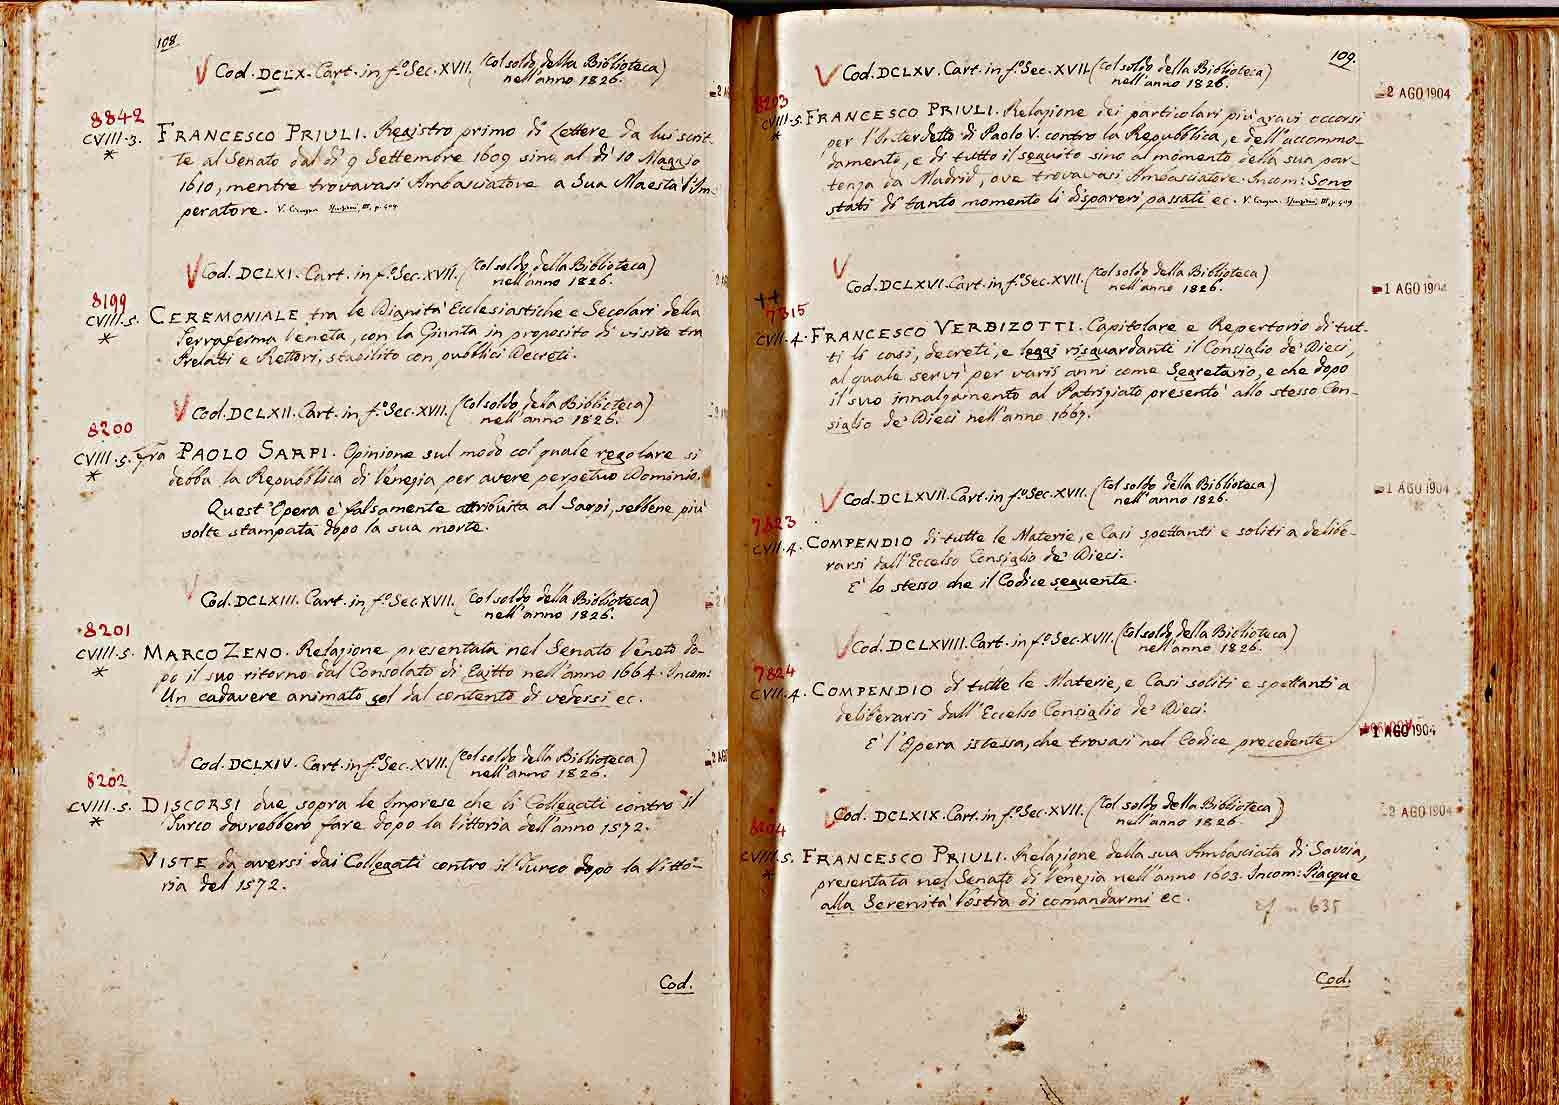 108
V Cod. DCLX. Cart. in f.º Sec. XVII. (Col soldo della Biblioteca)
nell'anno 1826.
8842
CVIII.3. FRANCESCO PRIULI. Registro primo di Lettere da lui scrit-
*
te al Senato dal dì 9 Settembre 1609 sino al dì 10 Maggio
1610, mentre trovavasi Ambasciatore a Sua Maestà l'Im-
peratore. V. Cicogna III, p. 509
V Cod. DCLXI. Cart. in f.º Sec. XVII. (Col soldo della Biblioteca)
nell'anno 1826.
8199
CVIII.5. CEREMONIALE tra le Dignità Ecclesiastiche e Secolari della
*
Terraferma Veneta, con la Giunta in proposito di visite tra
Prelati e Rettori, stabilito con pubblici Decreti.
V Cod. DCLXII. Cart. in f.º Sec. XVII. (Col soldo della Biblioteca)
nell'anno 1826.
8200
CVIII.5. Fra PAOLO SARPI. Opinione sul modo col quale regolare si
*
debba la Repubblica di Venezia per avere perpetuo Dominio.
Quest'Opera è falsamente attribuita al Sarpi, sebbene più
volte stampata dopo la sua morte.
V Cod. DCLXIII. Cart. in f.º Sec. XVII. (Col soldo della Biblioteca)
nell'anno 1826.
8201
CVIII.5. MARCO ZENO. Relazione presentata nel Senato Veneto do-
*
po il suo ritorno dal Consolato di Egitto nell'anno 1664. Incom:
Un cadavere animato sol dal contento di vedersi ec.
V Cod. DCLXIV. Cart. in f.º Sec. XVII. (Col soldo della Biblioteca)
nell'anno 1826.
8202
CVIII.5. DISCORSI due sopra le Imprese che li Collegati contro il
*
Turco dovrebbero fare dopo la Vittoria dell'anno 1572.
VISTE da aversi dai Collegati contro il Turco dopo la Vitto-
ria del 1572.
Cod.
109.
V Cod. DCLXV. Cart. in f.º Sec. XVII. (Col soldo della Biblioteca)
nell'anno 1826.
2 AGO 1904
8203
CVIII.5. FRANCESCO PRIULI. Relazione dei particolari più gravi occorsi
*
per l'Interdetto di Paolo V. contro la Repubblica, e dell'accommo-
damento, e di tutto il seguito sino al momento della sua par-
tenza da Madrid, ove trovavasi Ambasciatore. Incom: Sono
stati di tanto momento li dispareri passati ec. V. Cicogna III, p. 509
V Cod. DCLXVI. Cart. in f.º Sec. XVII. (Col soldo della Biblioteca)
nell'anno 1826.
1 AGO 1904
++
7315
CVII.4. FRANCESCO VERBIZOTTI. Capitolare e Repertorio di tut-
ti li casi, decreti, e leggi risguardanti il Consiglio de' Dieci,
al quale servì per varii anni come Segretario, e che dopo
il suo innalzamento al Patriziato presentò allo stesso Con-
siglio de' Dieci nell'anno 1669.
V Cod. DCLXVII. Cart. in f.º Sec. XVII. (Col soldo della Biblioteca)
nell'anno 1826.
1 AGO 1904
7823
CVII.4. COMPENDIO di tutte le Materie, e Casi spettanti e soliti a delibe-
rarsi dall'Eccelso Consiglio de' Dieci.
È lo stesso che il Codice seguente.
V Cod. DCLXVIII. Cart. in f.º Sec. XVII. (Col soldo della Biblioteca)
nell'anno 1826.
7824
CVII.4. COMPENDIO di tutte le Materie, e Casi soliti e spettanti a
deliberarsi dall'Eccelso Consiglio de' Dieci.
È l'Opera istessa, che trovasi nel Codice precedente.
1 AGO 1904
V Cod. DCLXIX. Cart. in f.º Sec. XVII. (Col soldo della Biblioteca)
nell'anno 1826
2 AGO 1904
8204
CVIII.5. FRANCESCO PRIULI. Relazione della sua Ambasciata di Savoia,
*
presentata nel Senato di Venezia nell'anno 1603. Incom: Piacque
alla Serenità Vostra di comandarmi ec.
Cf. n 635
Cod.